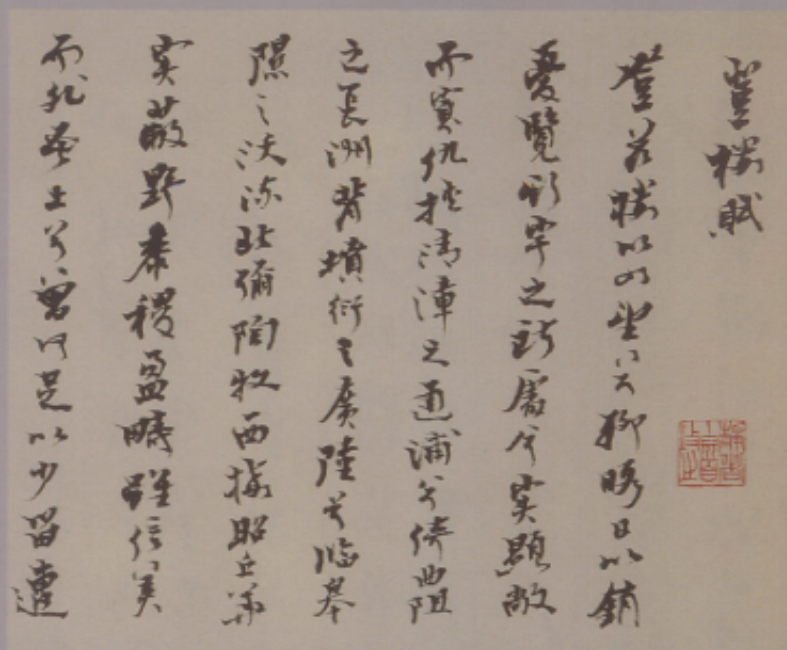 登樓賦
登茲樓以四望兮聊暇日以銷
憂覽斯宇之所處兮實顯敞
而寡仇挾清漳之通浦兮倚曲阻
之長洲背墳衍之廣陸兮臨皋
隰之沃流北彌陶牧西接昭丘華
實蔽野黍稷盈疇雖信美
而非吾土兮曾何足以少留遭